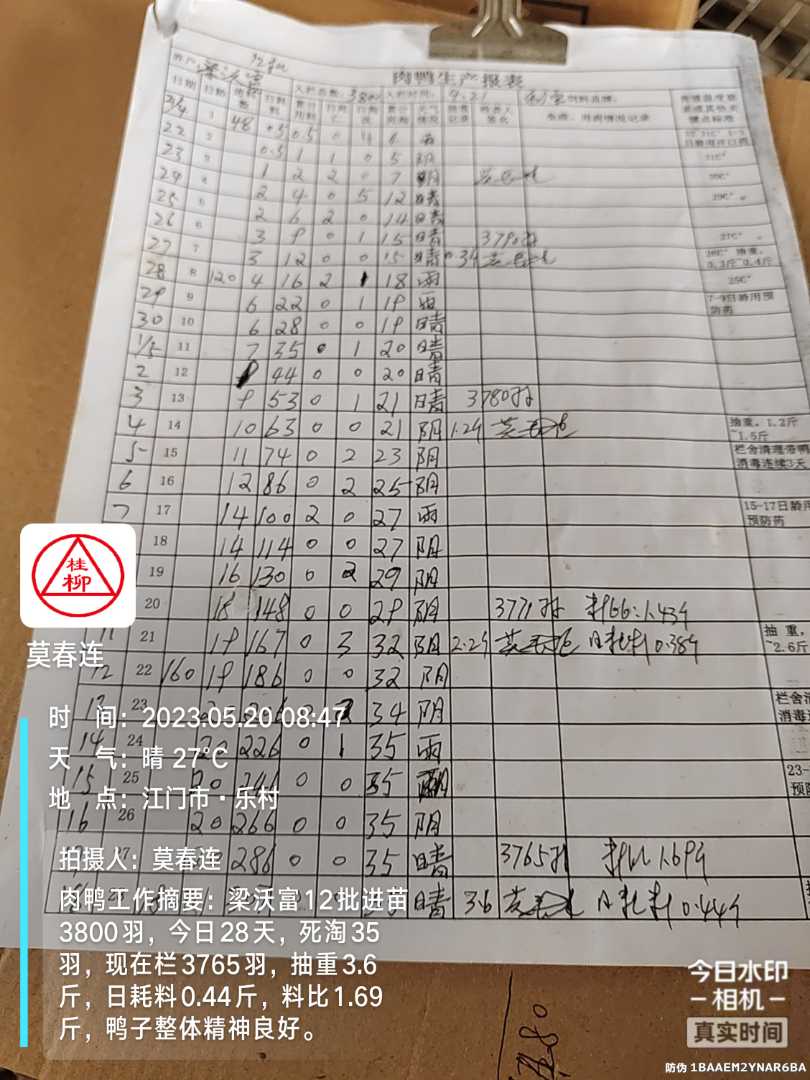 12批
肉鸭生产报表
养户 梁沃富 入栏总数: 3800 入栏时间: 4.21
日期 日龄
1 48 0.5 0.5 0 4 6 雨
22 2 0.5 1 1 0 5 阴
23 3 1 2 2 0 7 阴
24 4 2 4 0 5 12 晴
25 5 2 6 2 0 14 晴
26 6 3 9 0 1 15 晴 3790羽
27 7 3 12 0 0 15 晴
28 8 120 4 16 2 1 18 雨 25C°
29 9 6 22 0 1 19 雨 7-9日龄用预防药
30 10 6 28 0 0 19 晴
1/5 11 7 35 0 1 20 晴
2 12 9 44 0 0 20 晴
3 13 9 53 0 1 21 晴 3780羽
4 14 10 63 0 0 21 阴 1.2斤 抽重:1.2斤~1.5斤
5 15 11 74 0 2 23 阴 栏舍清理带鸭消毒连续3天
6 16 12 86 0 2 25 阴
7 17 14 100 2 0 27 雨 15-17日龄用预防药
18 14 114 0 0 27 阴
19 16 130 0 2 29 阴
20 18 148 0 0 29 阴 3771羽 料比:1.43斤
11 21 19 167 0 3 32 阴 2.2斤 日耗料0.38斤 抽重:~2.6斤
12 22 160 19 186 0 0 32 阴
13 23 0 2 34 阴 栏舍清消毒
14 24 20 226 0 1 35 雨
15 25 20 246 0 0 35 阴 23-预防
16 26 20 266 0 0 35 阴
27 286 0 0 35 晴 3765羽 料比1.69斤
晴 3.6 日耗料0.44斤
桂柳
莫春连
时 间:2023.05.20 08:47
天 气:晴 27℃
地 点:江门市·乐村
拍摄人:莫春连
肉鸭工作摘要:梁沃富12批进苗
3800羽,今日28天,死淘35
羽,现在栏3765羽,抽重3.6
斤,日耗料0.44斤,料比1.69
斤,鸭子整体精神良好。
今日水印
相机
真实时间
防伪 1BAAEM2YNAR6BA